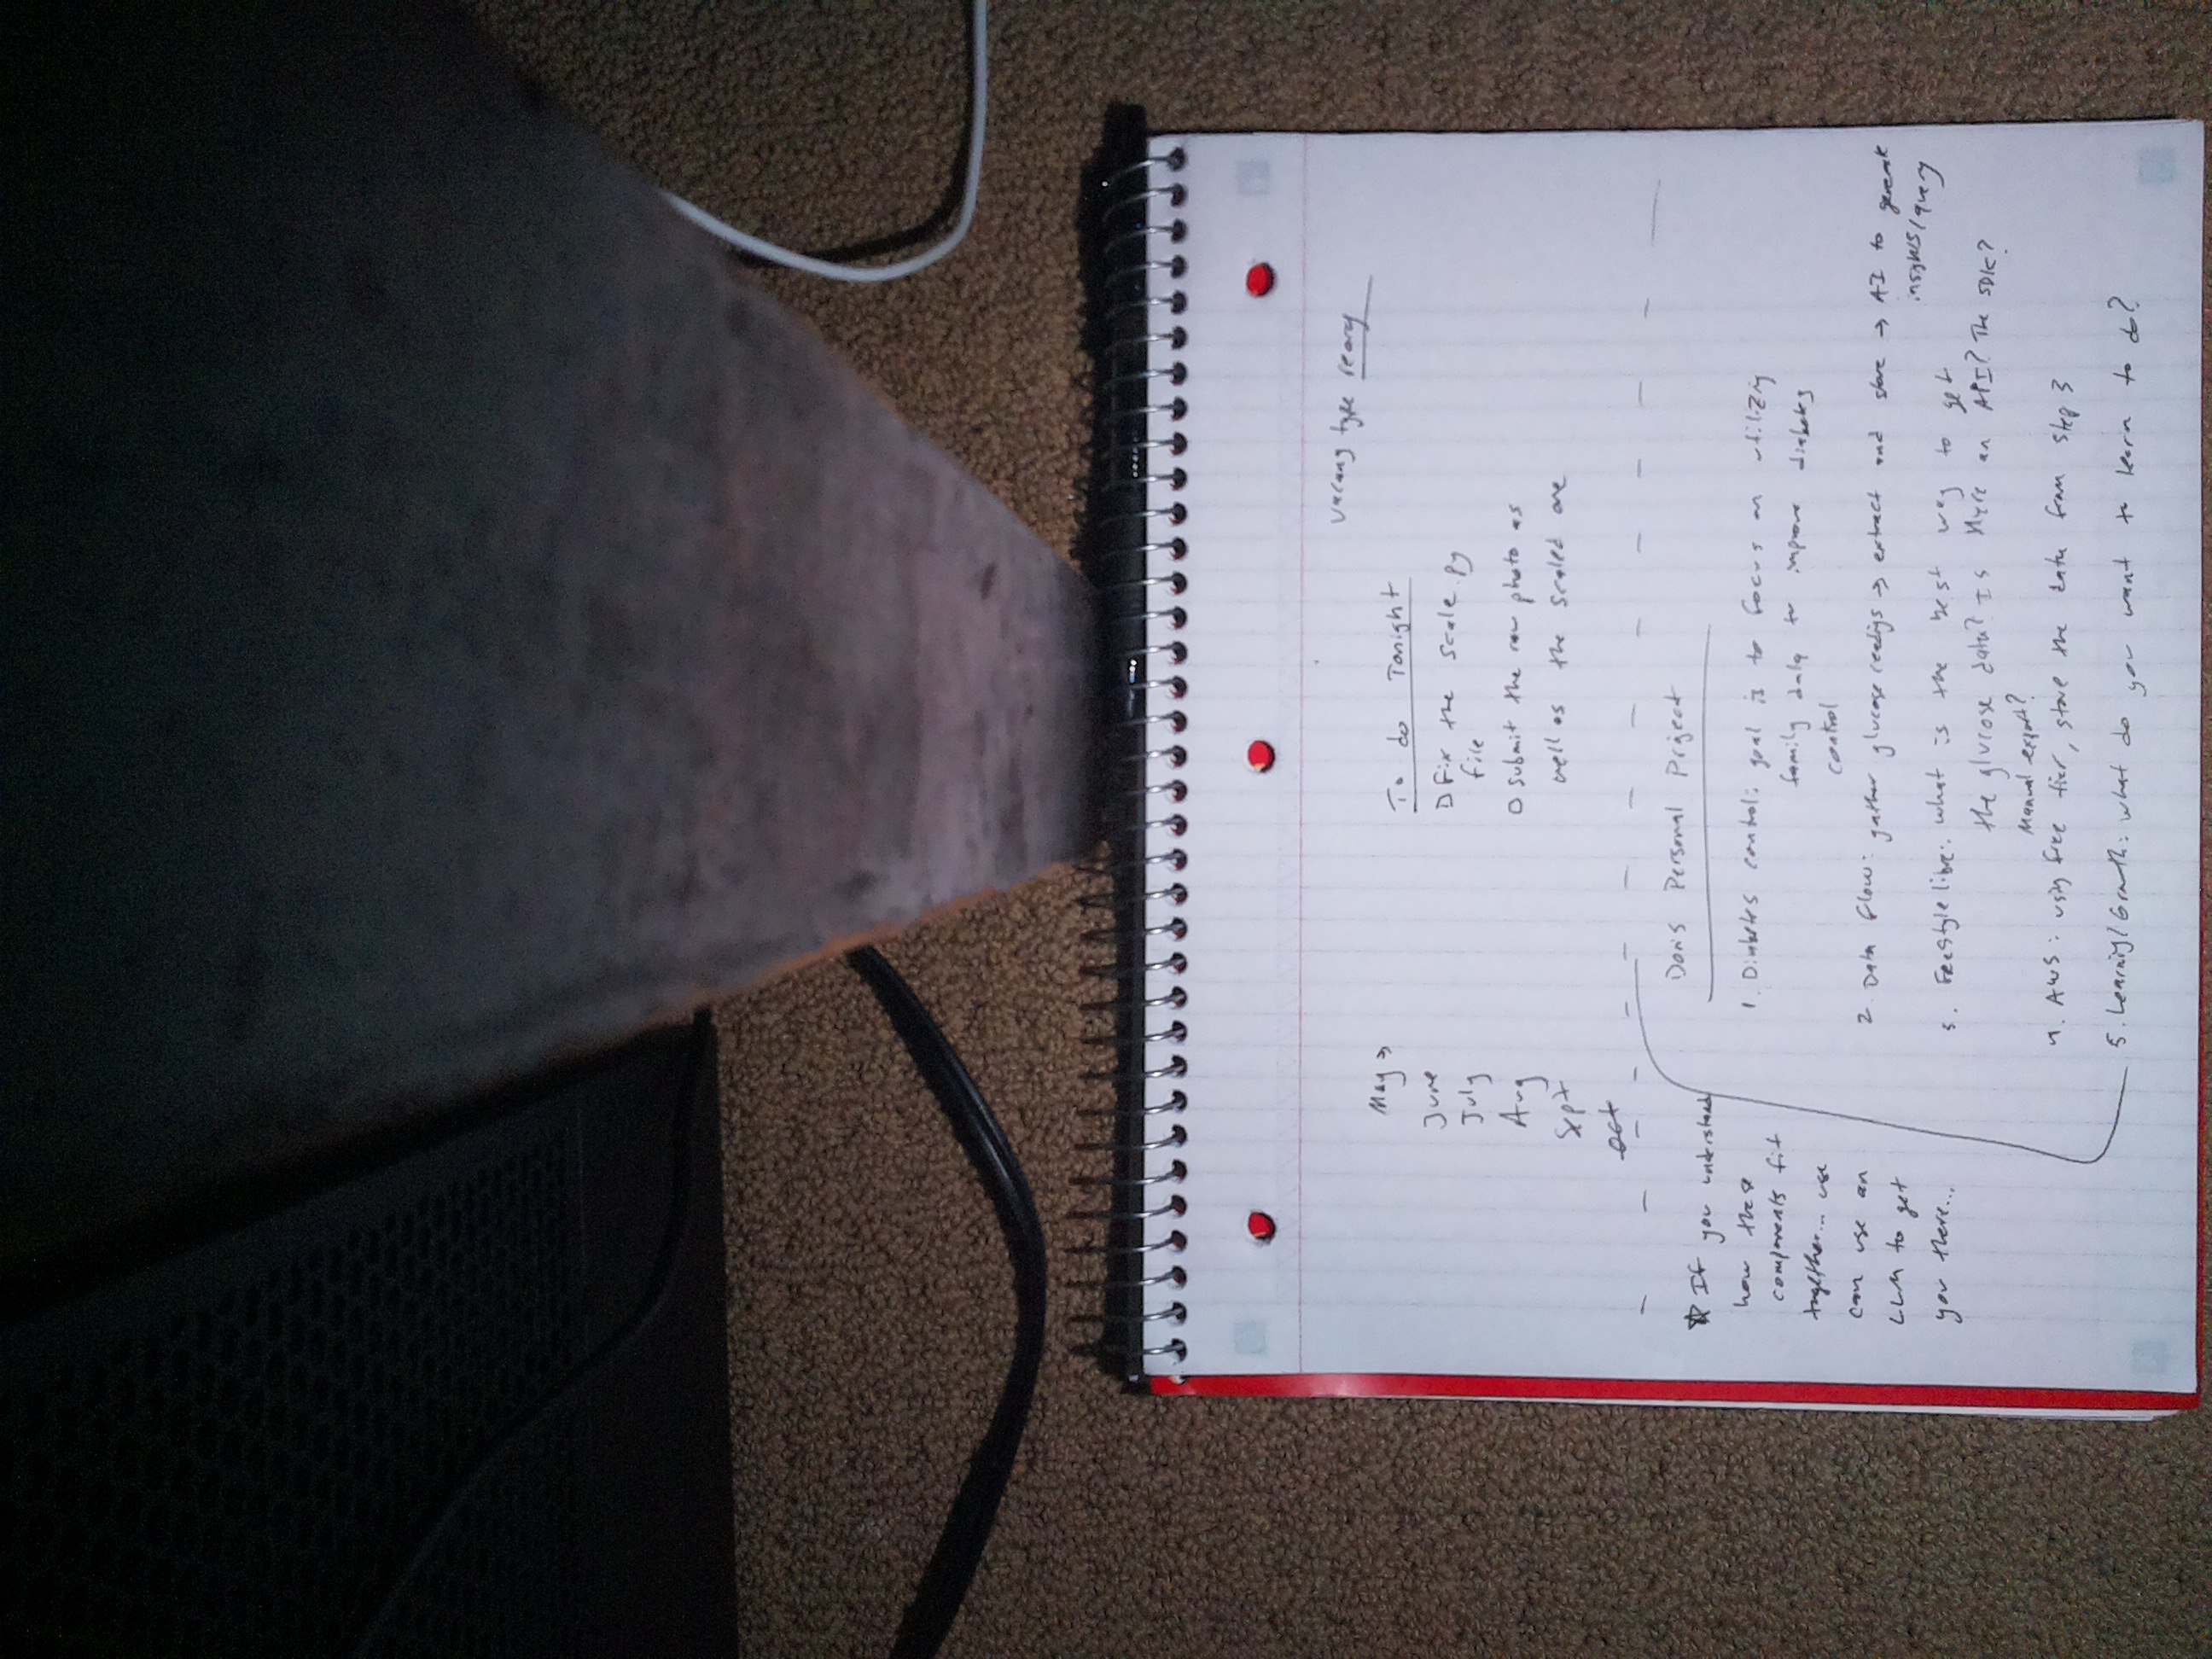 vacancy type
To do Tonight
Fix the scale.py
file
Submit the raw photo as
well as the scaled one
May →
June
July
Aug
Sept
Oct
Don's Personal Project
1. Diabetes control: goal is to focus on utilizing
family data to improve diabetes
control
2. Data Flow: gather glucose readings → extract and store → AI to generate
insights/query
3. Freestyle libre: what is the best way to get
the glucose data? Is there an API? The SDK?
Manual export?
4. AWS: using free tier, store the data from step 3
5. Learning/Growth: what do you want to learn to do?
If you understand
how these
components fit
together... use
can use an
LLM to get
you there...